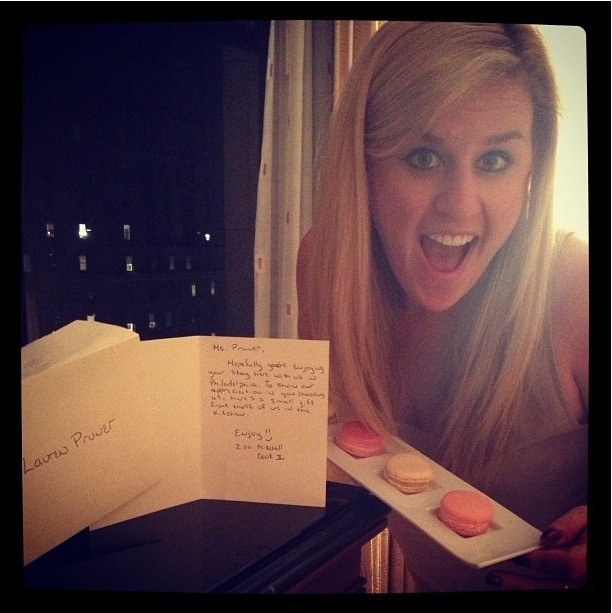 Lauren Pruner
Ms. Pruner,
Hopefully you're enjoying
your stay here with us in
Philadelphia. To show our
appreciation in you choosing
us, here's a small gift
from those of us in the
kitchen.
Enjoy!!
Mitchell
Cook II